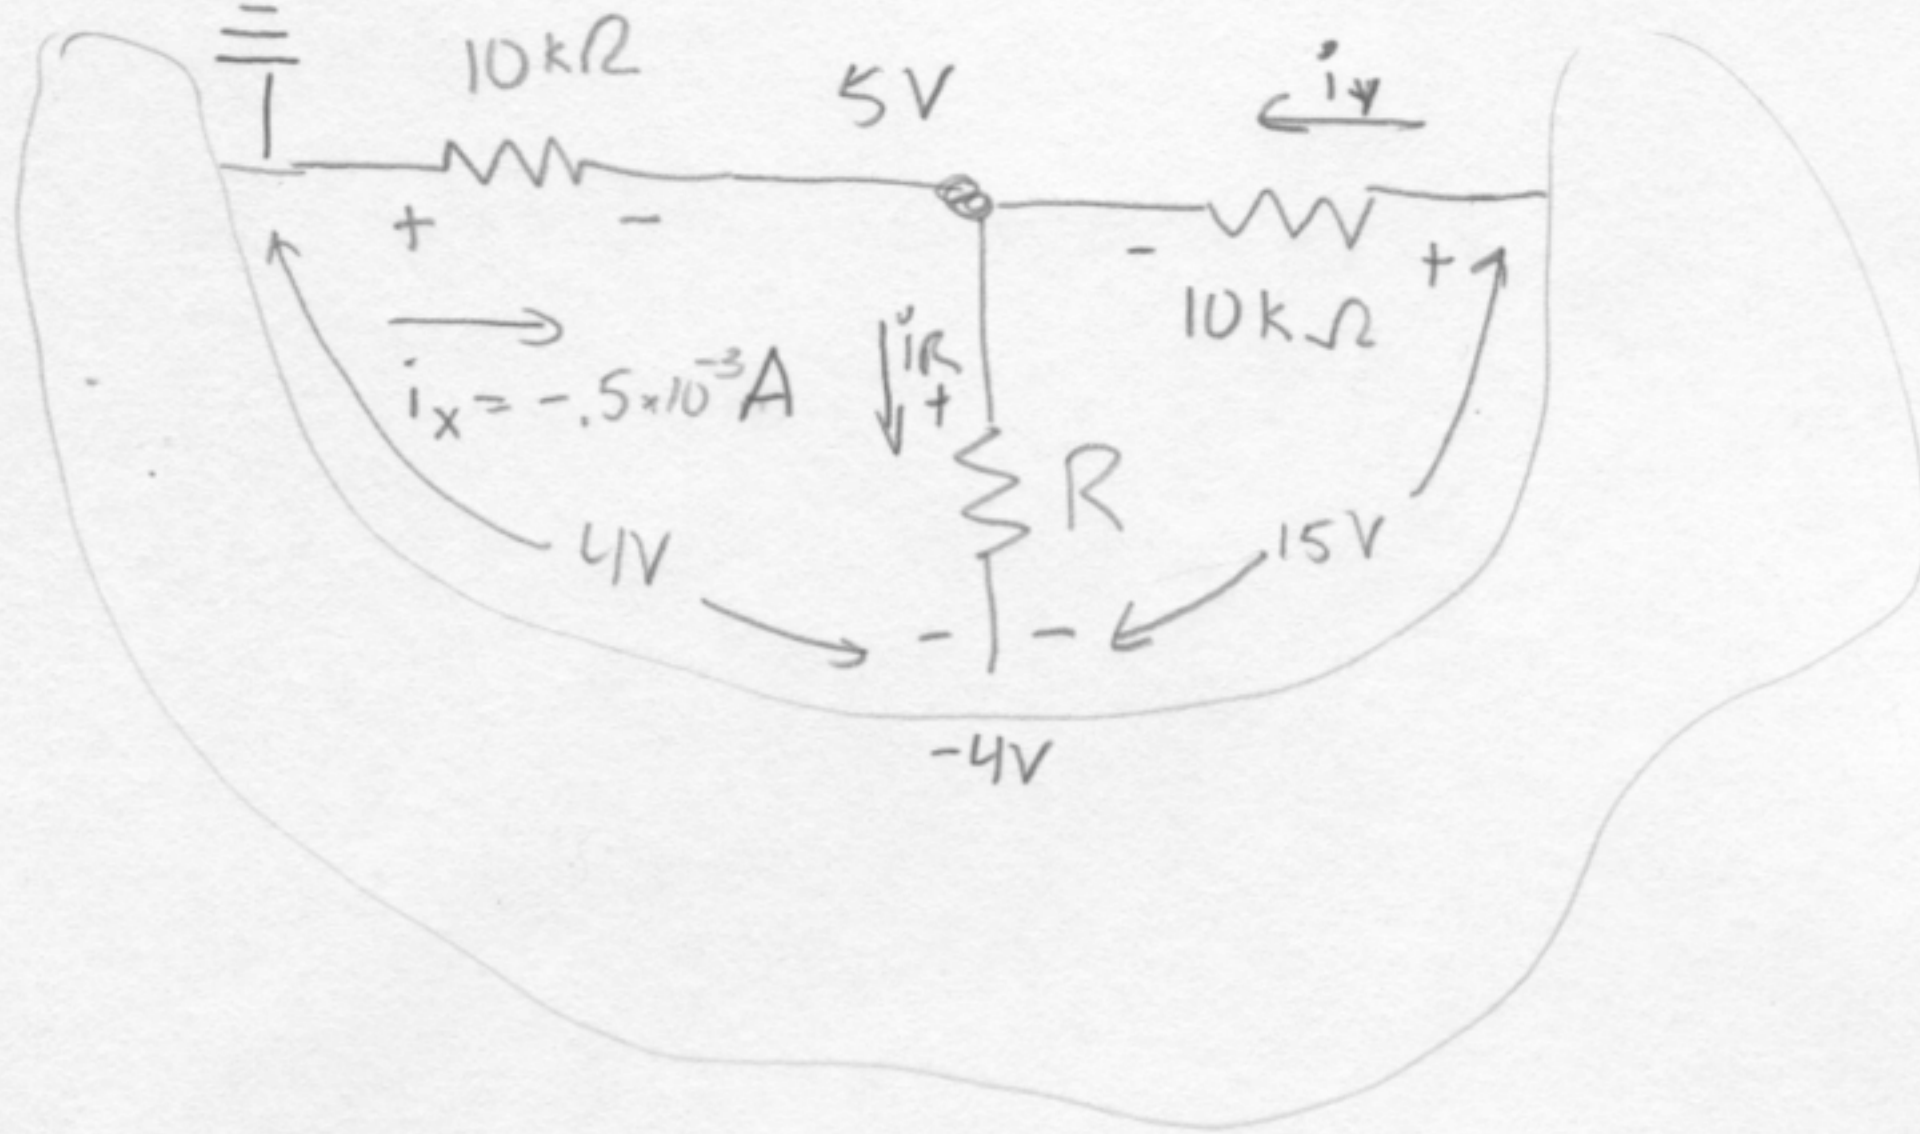 10kΩ
5V
iy
+ -
- +
10kΩ
iR
+
ix = -.5×10⁻³A
R
4V
15V
- -
-4V